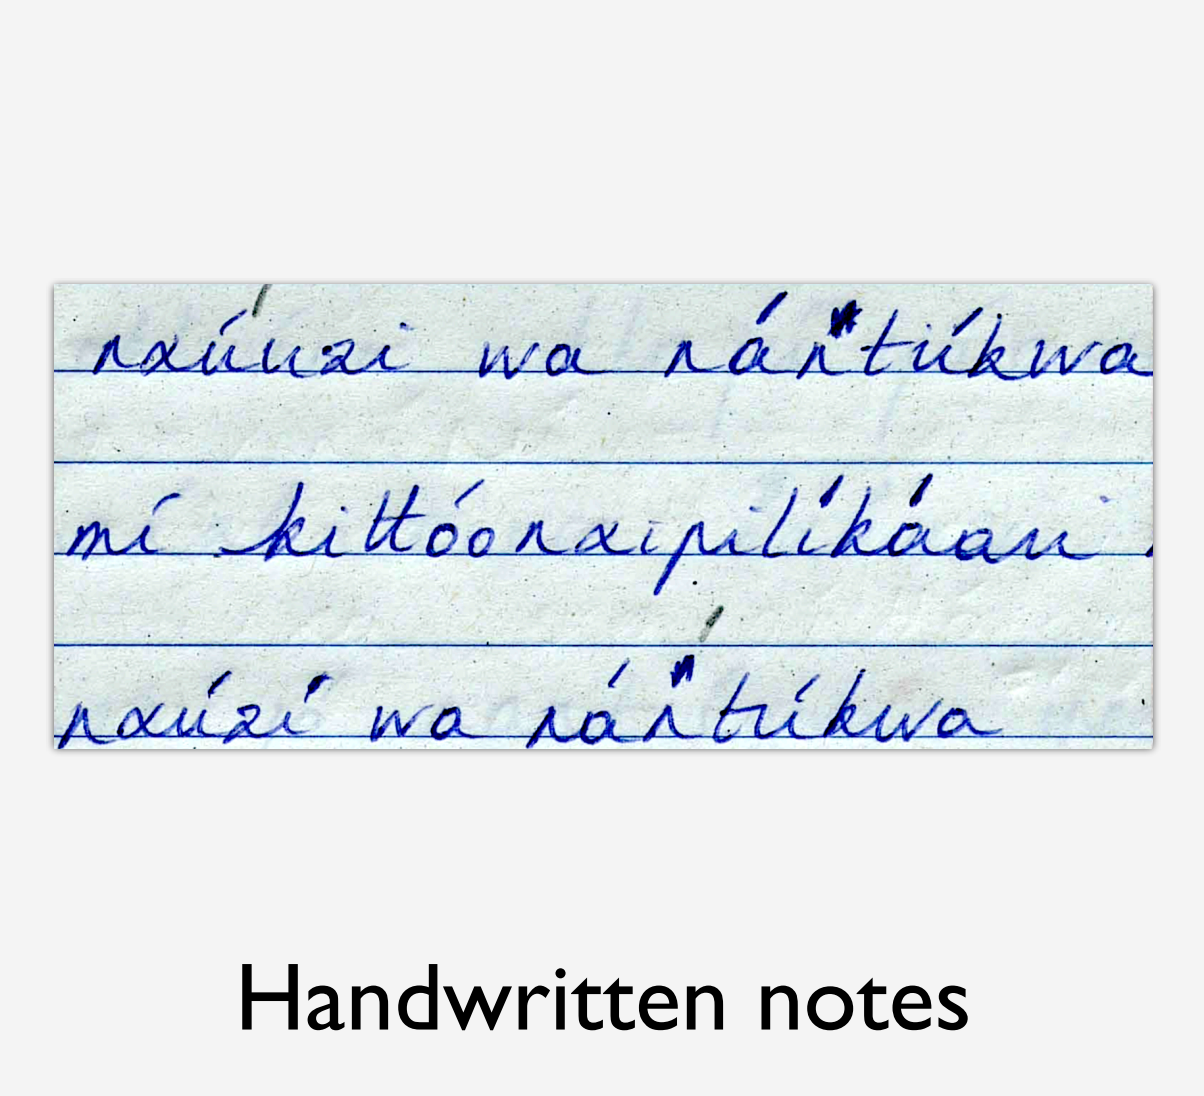 nxúuzi wa náńtúkwa
mí kittóonxipilíkáani
nxúzí wa náńtúkwa
Handwritten notes